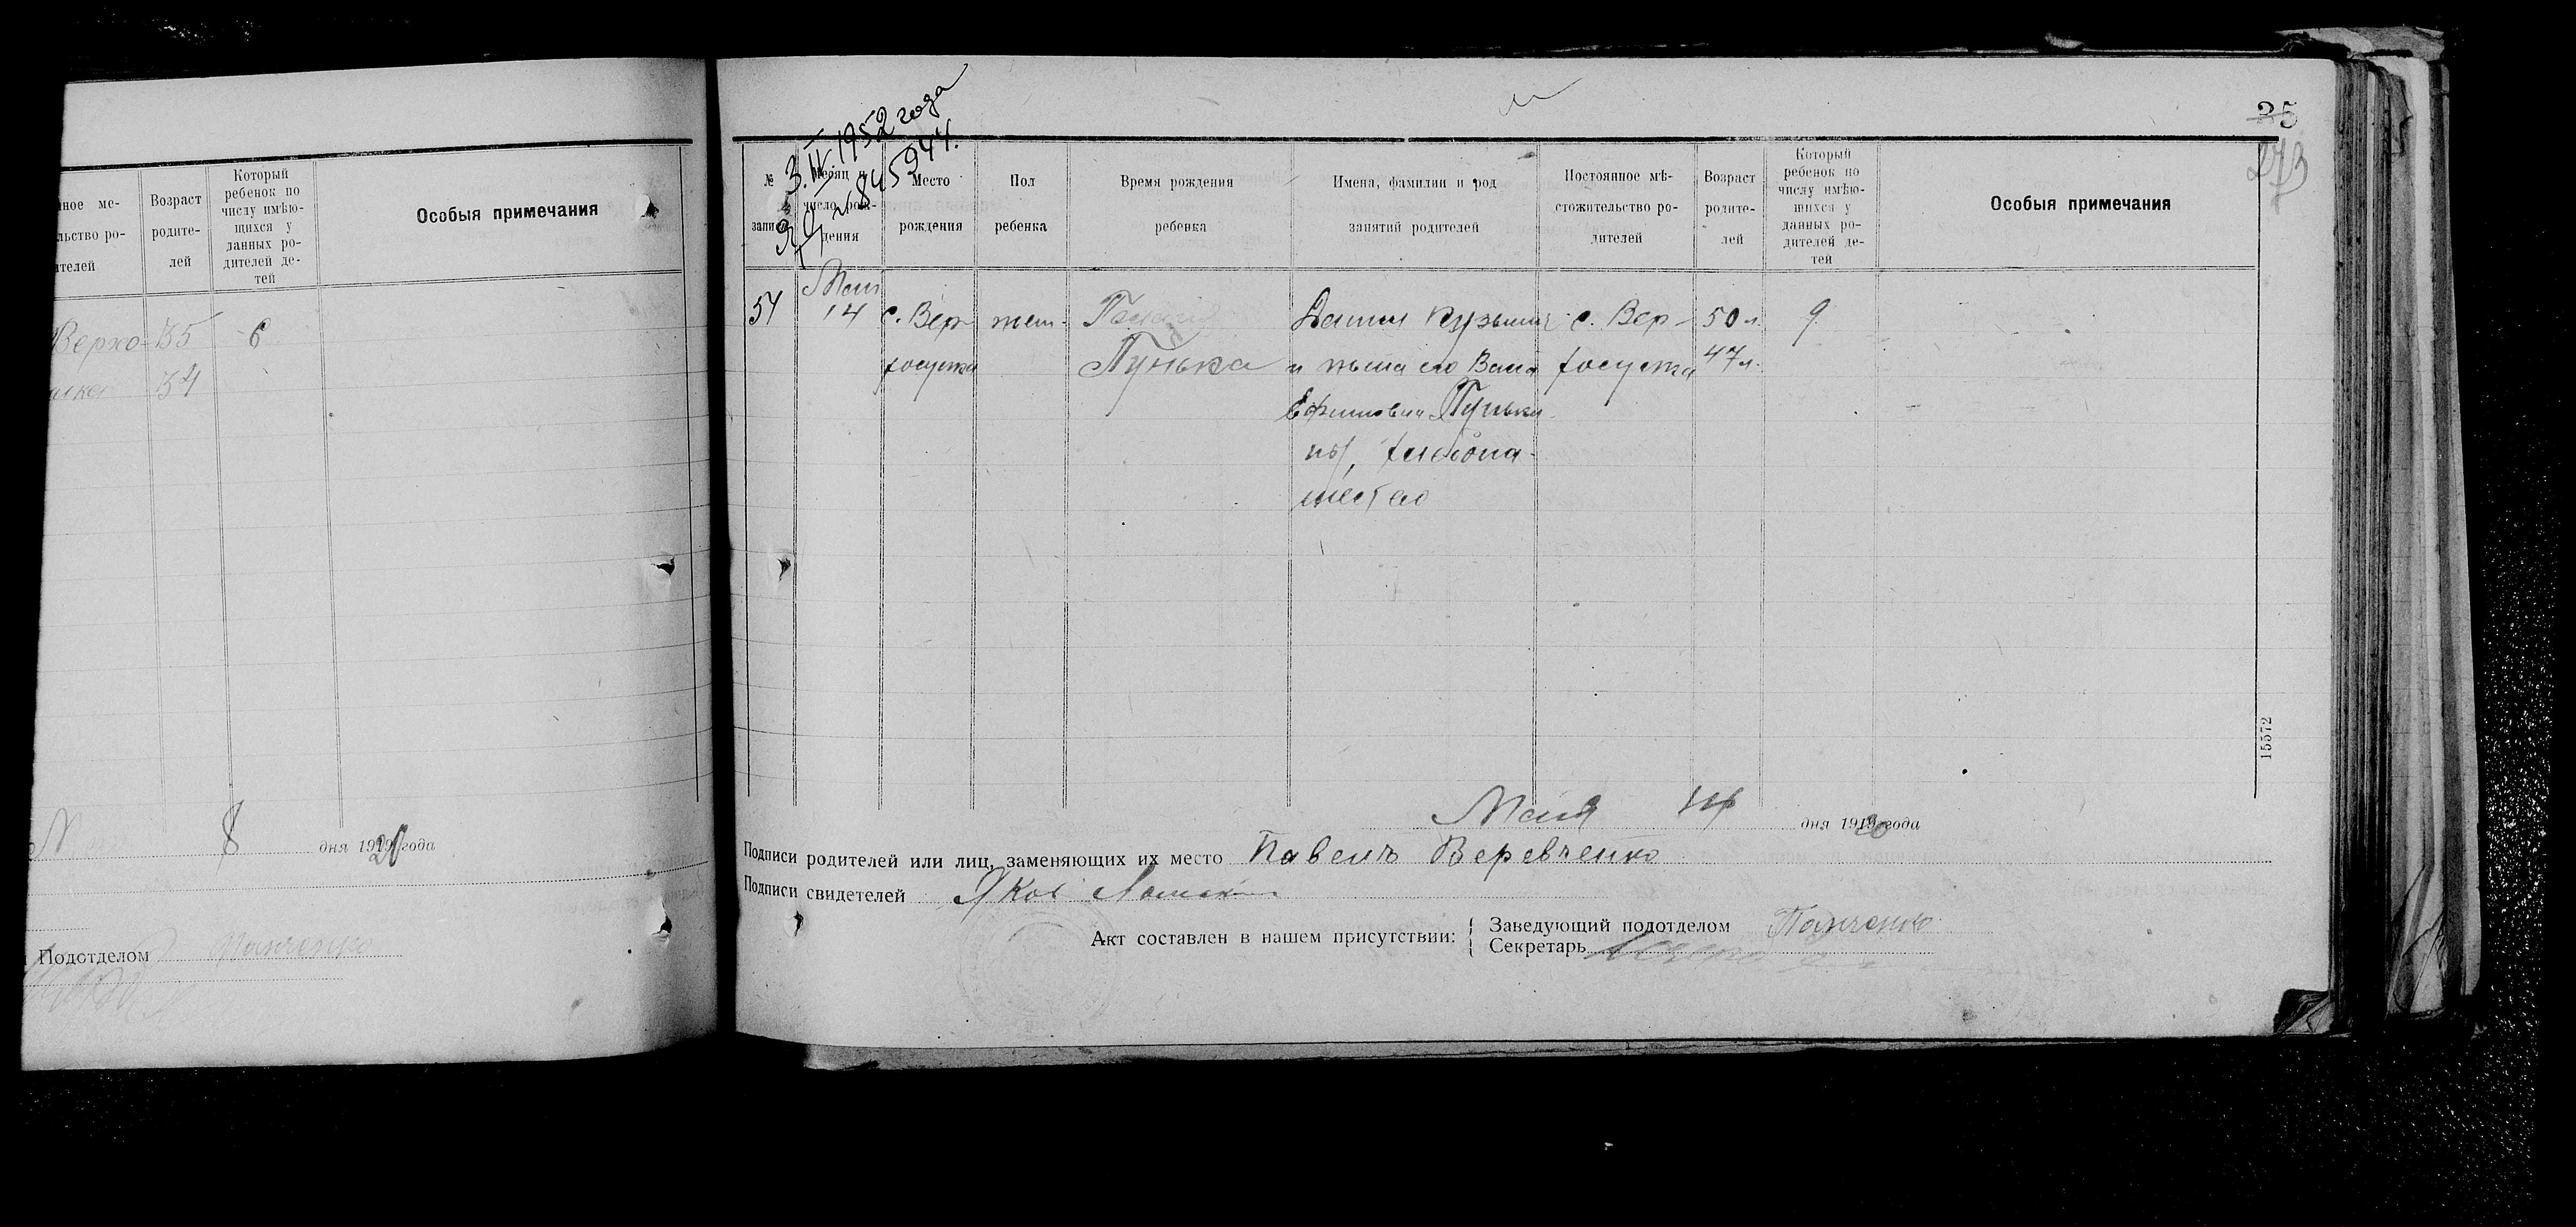 ное ме-
льство ро-
ителей
Возраст
родите-
лей
Который
ребенок по
числу имѣю-
щихся у
данных ро-
дителей де-
тей
Особыя примечания
Верхо- 35 6
34
8 дня 1920 года
Подотделом Панченко
3.IV.1952 года
25
273
№
записи
Месяц и
число рож-
дения
Место
рождения
Пол
ребенка
Время рождения
ребенка
Имена, фамилии и род
занятий родителей
Постоянное мѣ-
стожительство ро-
дителей
Возраст
родите-
лей
Который
ребенок по
числу имѣю-
щихся у
данных ро-
дителей де-
тей
Особыя примечания
Мая
54 14 с. Вер- жен. Кузьмич с. Вер- 50 л. 9
Пунька и жена его 47 л.
Ефимовна
хлебопа-
шество
15572
Мая 14 дня 1920 года
Подписи родителей или лиц, заменяющих их место Павелъ Веревченко
Подписи свидетелей Яков
Акт составлен в нашем присутствии: Заведующий подотделом Панченко
Секретарь